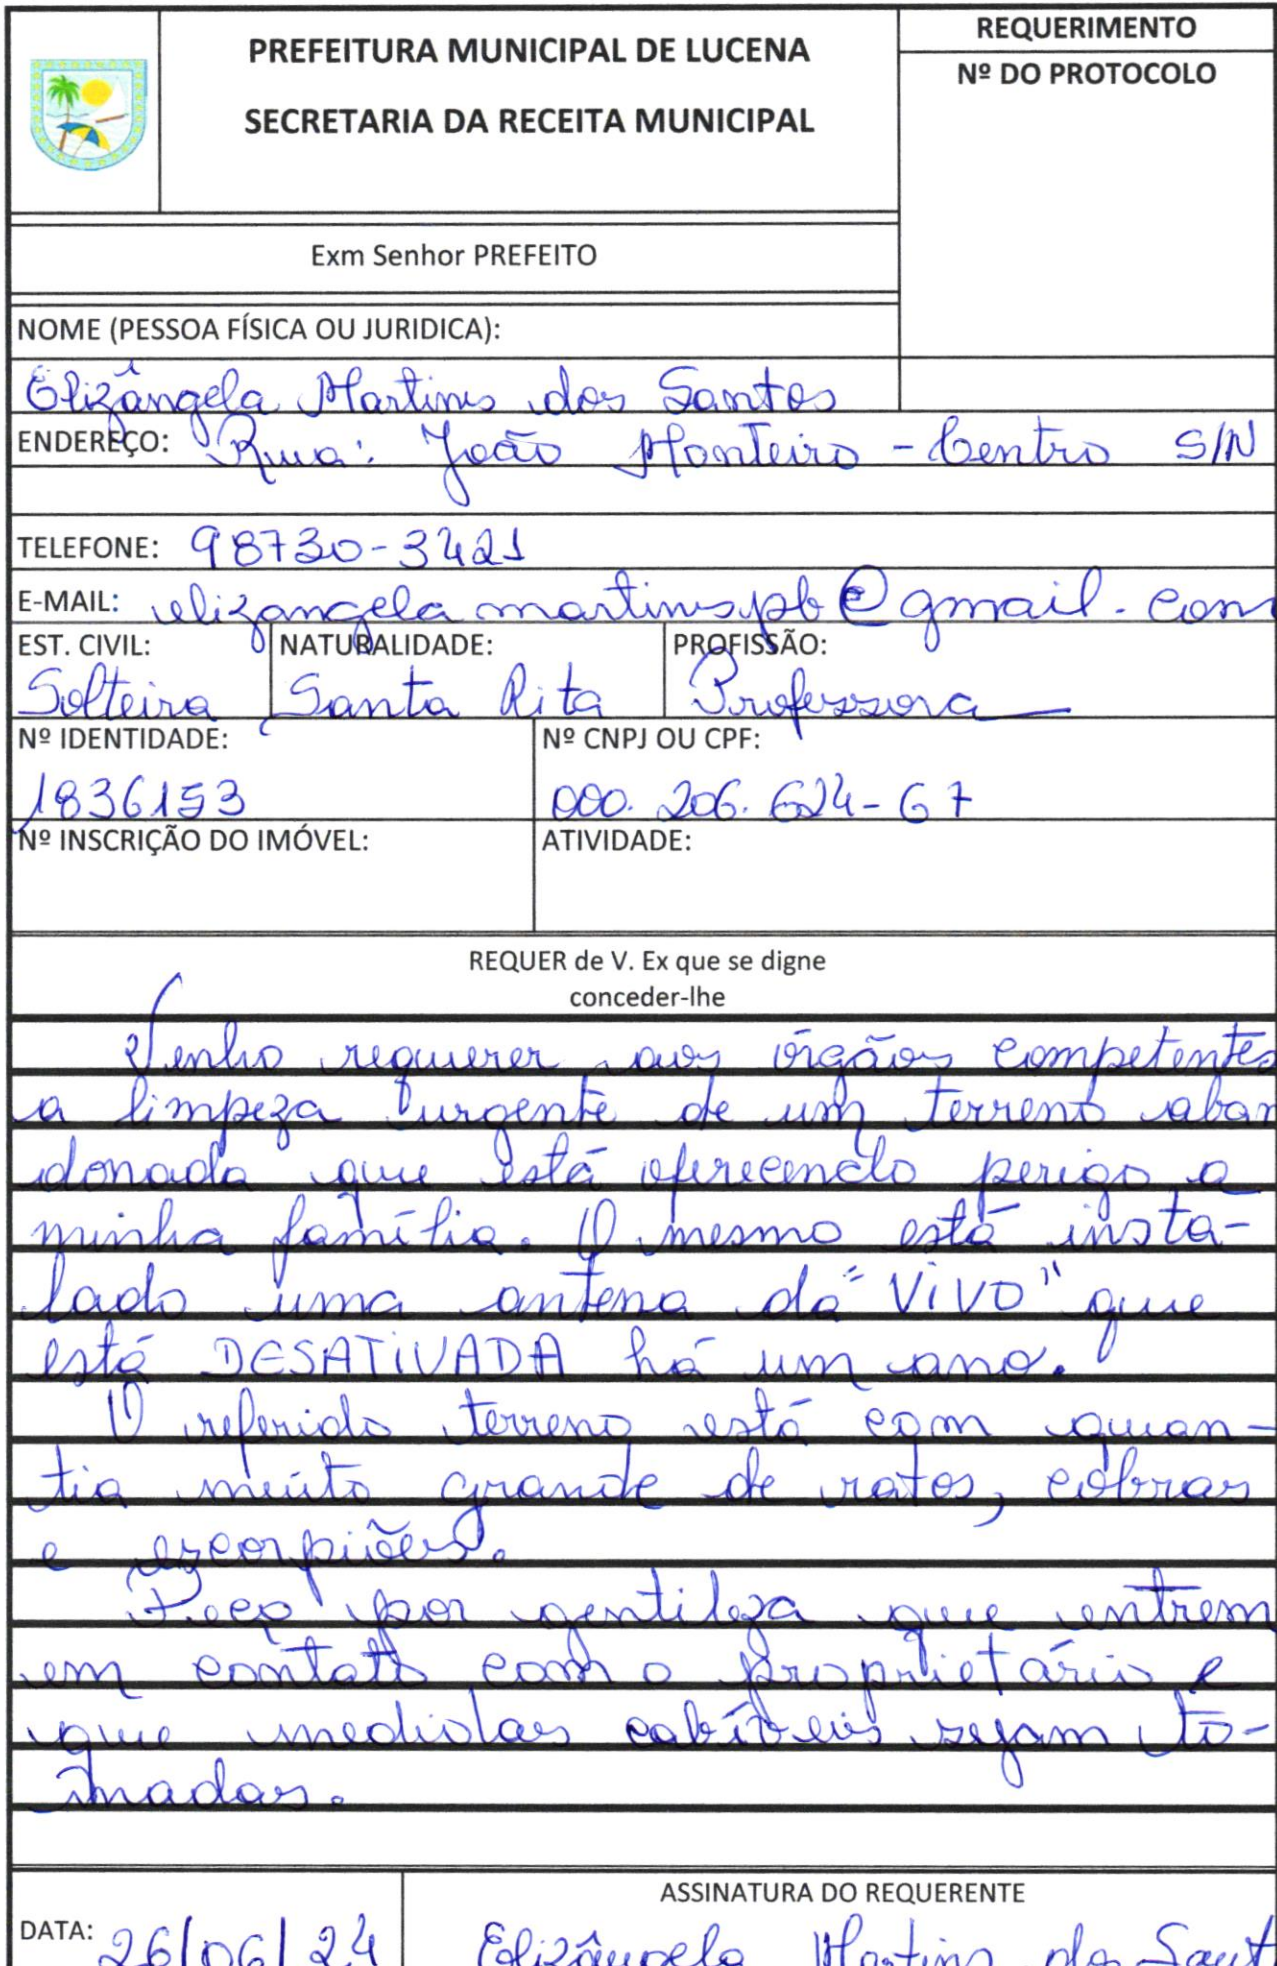 PREFEITURA MUNICIPAL DE LUCENA
SECRETARIA DA RECEITA MUNICIPAL
REQUERIMENTO
Nº DO PROTOCOLO
Exm Senhor PREFEITO
NOME (PESSOA FÍSICA OU JURIDICA):
Elizângela Martins dos Santos
ENDEREÇO: Rua: João Monteiro - Centro S/N
TELEFONE: 98730-3421
E-MAIL: elizangelamartinspb@gmail.com
EST. CIVIL: NATURALIDADE: PROFISSÃO:
Solteira Santa Rita Professora
Nº IDENTIDADE: Nº CNPJ OU CPF:
1836153 000.206.624-67
Nº INSCRIÇÃO DO IMÓVEL: ATIVIDADE:
REQUER de V. Ex que se digne
conceder-lhe
Venho requerer aos órgãos competentes
a limpeza urgente de um terreno aban
donada que está oferecendo perigo a
minha família. O mesmo está insta-
lado uma antena da "ViVO" que
está DESATiVADA há um ano.
O referido terreno está com quan-
tia muito grande de ratos, cobras
e escorpiões.
Peço por gentileza que entrem
em contato com o proprietário e
que medidas cabíveis sejam to-
madas.
DATA: 26/06/24
ASSINATURA DO REQUERENTE
Elizângela Martins dos Sant